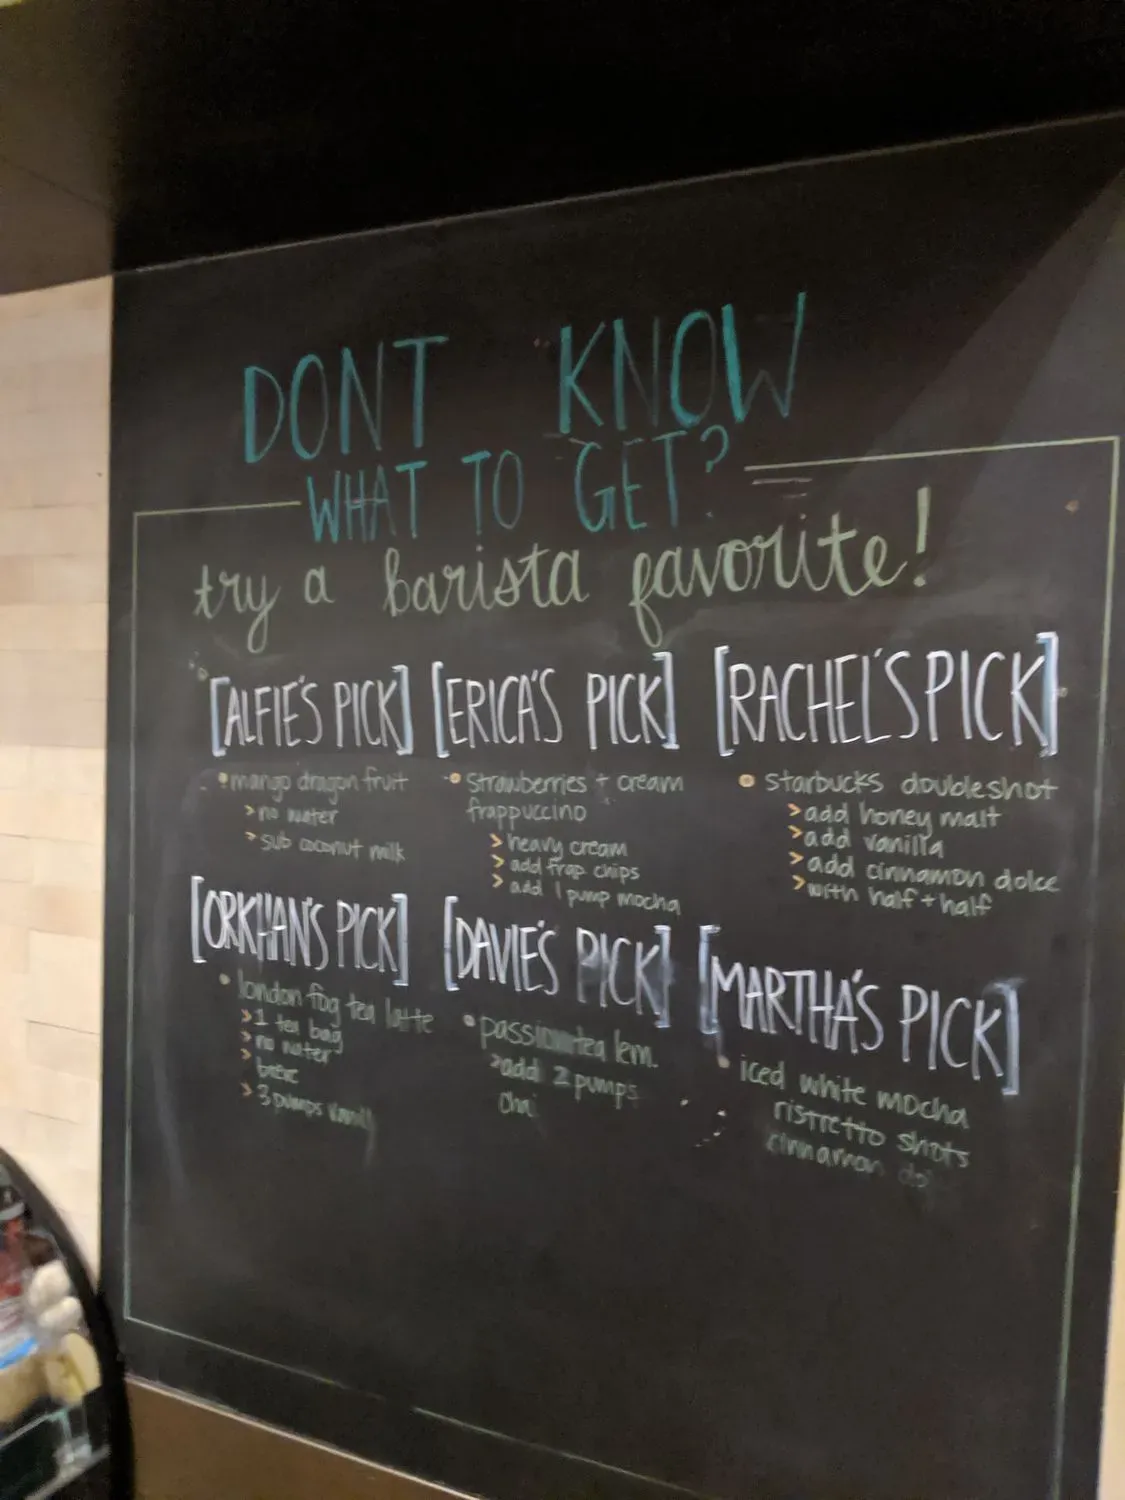 DONT KNOW
WHAT TO GET?
try a barista favorite!
[ALFIE'S PICK]
• mango dragon fruit
> no water
> sub coconut milk
[ERICA'S PICK]
• strawberries + cream
frappuccino
> heavy cream
> add frap chips
> add 1 pump mocha
[RACHEL'S PICK]
• starbucks doubleshot
> add honey malt
> add vanilla
> add cinnamon dolce
> with half + half
[ORKHAN'S PICK]
• london fog tea latte
> 1 tea bag
> no water
> breve
> 3 pumps vanilla
[DAVIE'S PICK]
• passion tea lem.
> add 2 pumps
chai
[MARTHA'S PICK]
• iced white mocha
ristretto shots
cinnamon